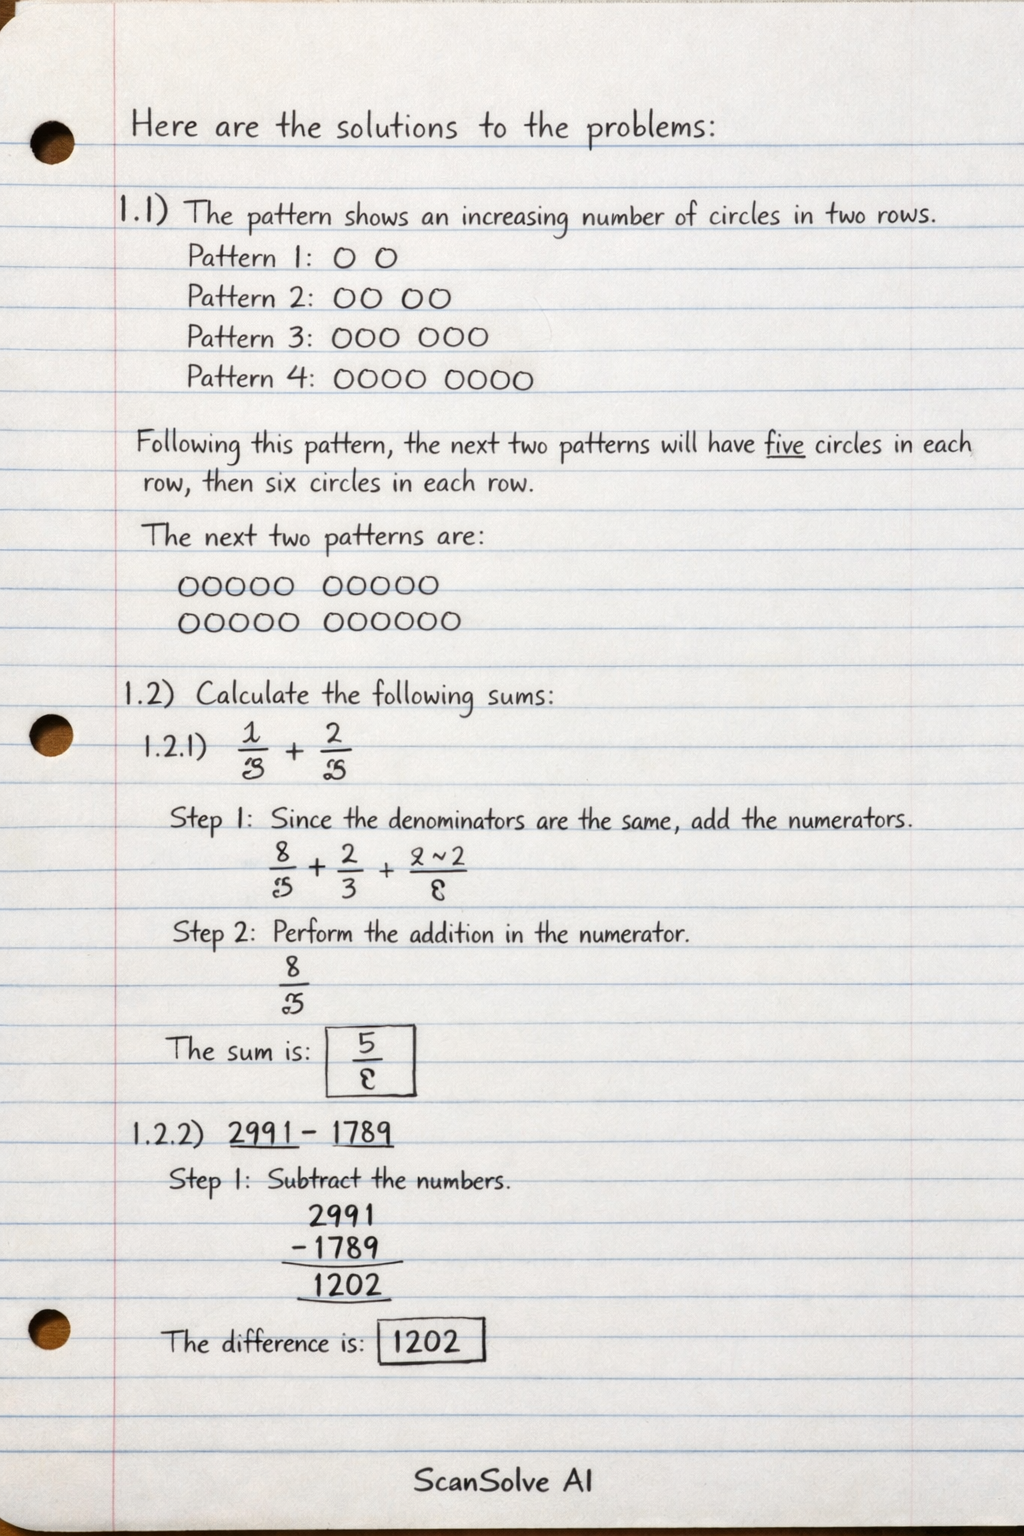 Here are the solutions to the problems:
1.1) The pattern shows an increasing number of circles in two rows.
Pattern 1: O O
Pattern 2: OO OO
Pattern 3: OOO OOO
Pattern 4: OOOO OOOO
Following this pattern, the next two patterns will have five circles in each
row, then six circles in each row.
The next two patterns are:
OOOOO OOOOO
OOOOO OOOOOO
1.2) Calculate the following sums:
1.2.1) + 2
Step 1: Since the denominators are the same, add the numerators.
8 + 2/3 + 2~2
Step 2: Perform the addition in the numerator.
8
The sum is: 5
1.2.2) 2991 - 1789
Step 1: Subtract the numbers.
2991
-1789
1202
The difference is: 1202
ScanSolve AI